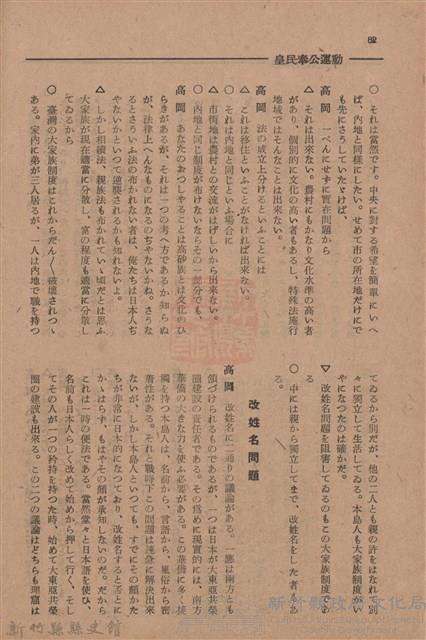 皇民奉公運動
〇 それは當然です。中央に對する希望を簡單にいへ
ば、内地と同様にしたい。せめて市の所在地だけにで
も先にさうしていたゞけば、
高岡 一ぺんにせずに實在問題から
△ それは出來ない。農村にもかなり文化水準の高い者
があり、個別的に文化の高い者もあるし、特殊法施行
地域ではそんなことは出來ない。
高岡 法の成立上分けるといふことには
△ これは移住といふことがなければ出來ない。
〇 それは内地と同じといふ場合に
△ 市街地は農村との交流がはげしいから出來ない。
〇 内地と同じ制度が布けないならその一部分でも、
高岡 あなたのおつしやることは高砂族とは文化のひ
らきがあるが、それは一つの考へ方であるか知らぬ
が、法律上へんなものになるのぢやないかね。さうな
るとさういふ法の布かれない者は、俺たちは日本人ぢ
やないかといつて逆襲されるかも知れないよ。
△ しかし相續法、親族法も布かれてい〻頃だとは思ふ
大家族が現在適當に分散し、富の程度も適當に分散し
てゐるから
〇 臺灣の大家族制度はこれからだん〳〵破壞されつゝ
ある。家内に弟が三人居るが、一人は内地で職を持つ
てゐるから別だが、他の二人とも親の許をはなれて別
々に獨立して生活してゐる。本島人も大家族制度がい
やになつたのは確かだ。
▽ 改姓名問題を阻害してゐるのもこの大家族制度であ
る
〇 中には親から獨立してまで、改姓名をした者があ
る。
改姓名問題
高岡 改姓名に二通りの議論がある。一應は兩方とも
頷づけられるものであるが、一つは日本が大東亞共榮
圏建設の責任者である。その爲めに現實的には、南方
華僑の大きな力を使ふ必要がある。この華僑に多く接
觸を持つ本島人は、名前から、言語から、風俗から密
着性がある。それと戰時下この問題は速急に解決出來
ないが、しかし本島人といつても、すでにその顔かた
ちが非常に日本的になつており、改姓名すると否とに
かゝはらず、もはやその顔が承知しないのだ。だから
これは一時の便法である。當然堂々と日本語を使ひ、
名前も日本人らしく改めて始めから押して行く、そし
てその人が一つの矜持を持つた時、始めて大東亞共榮
圏の建設も出來る。この二つの議論はどちらも理窟は
新竹縣縣史館
新竹縣政府文化局